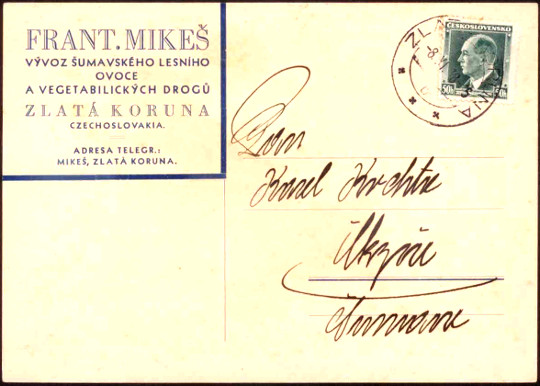 FRANT. MIKEŠ
VÝVOZ ŠUMAVSKÉHO LESNÍHO
OVOCE
A VEGETABILICKÝCH DROGŮ
ZLATÁ KORUNA
CZECHOSLOVAKIA.
ADRESA TELEGR.:
MIKEŠ, ZLATÁ KORUNA.
ČESKOSLOVENSKO
50h 50h
Pan
Karel Kuchta
Šumava